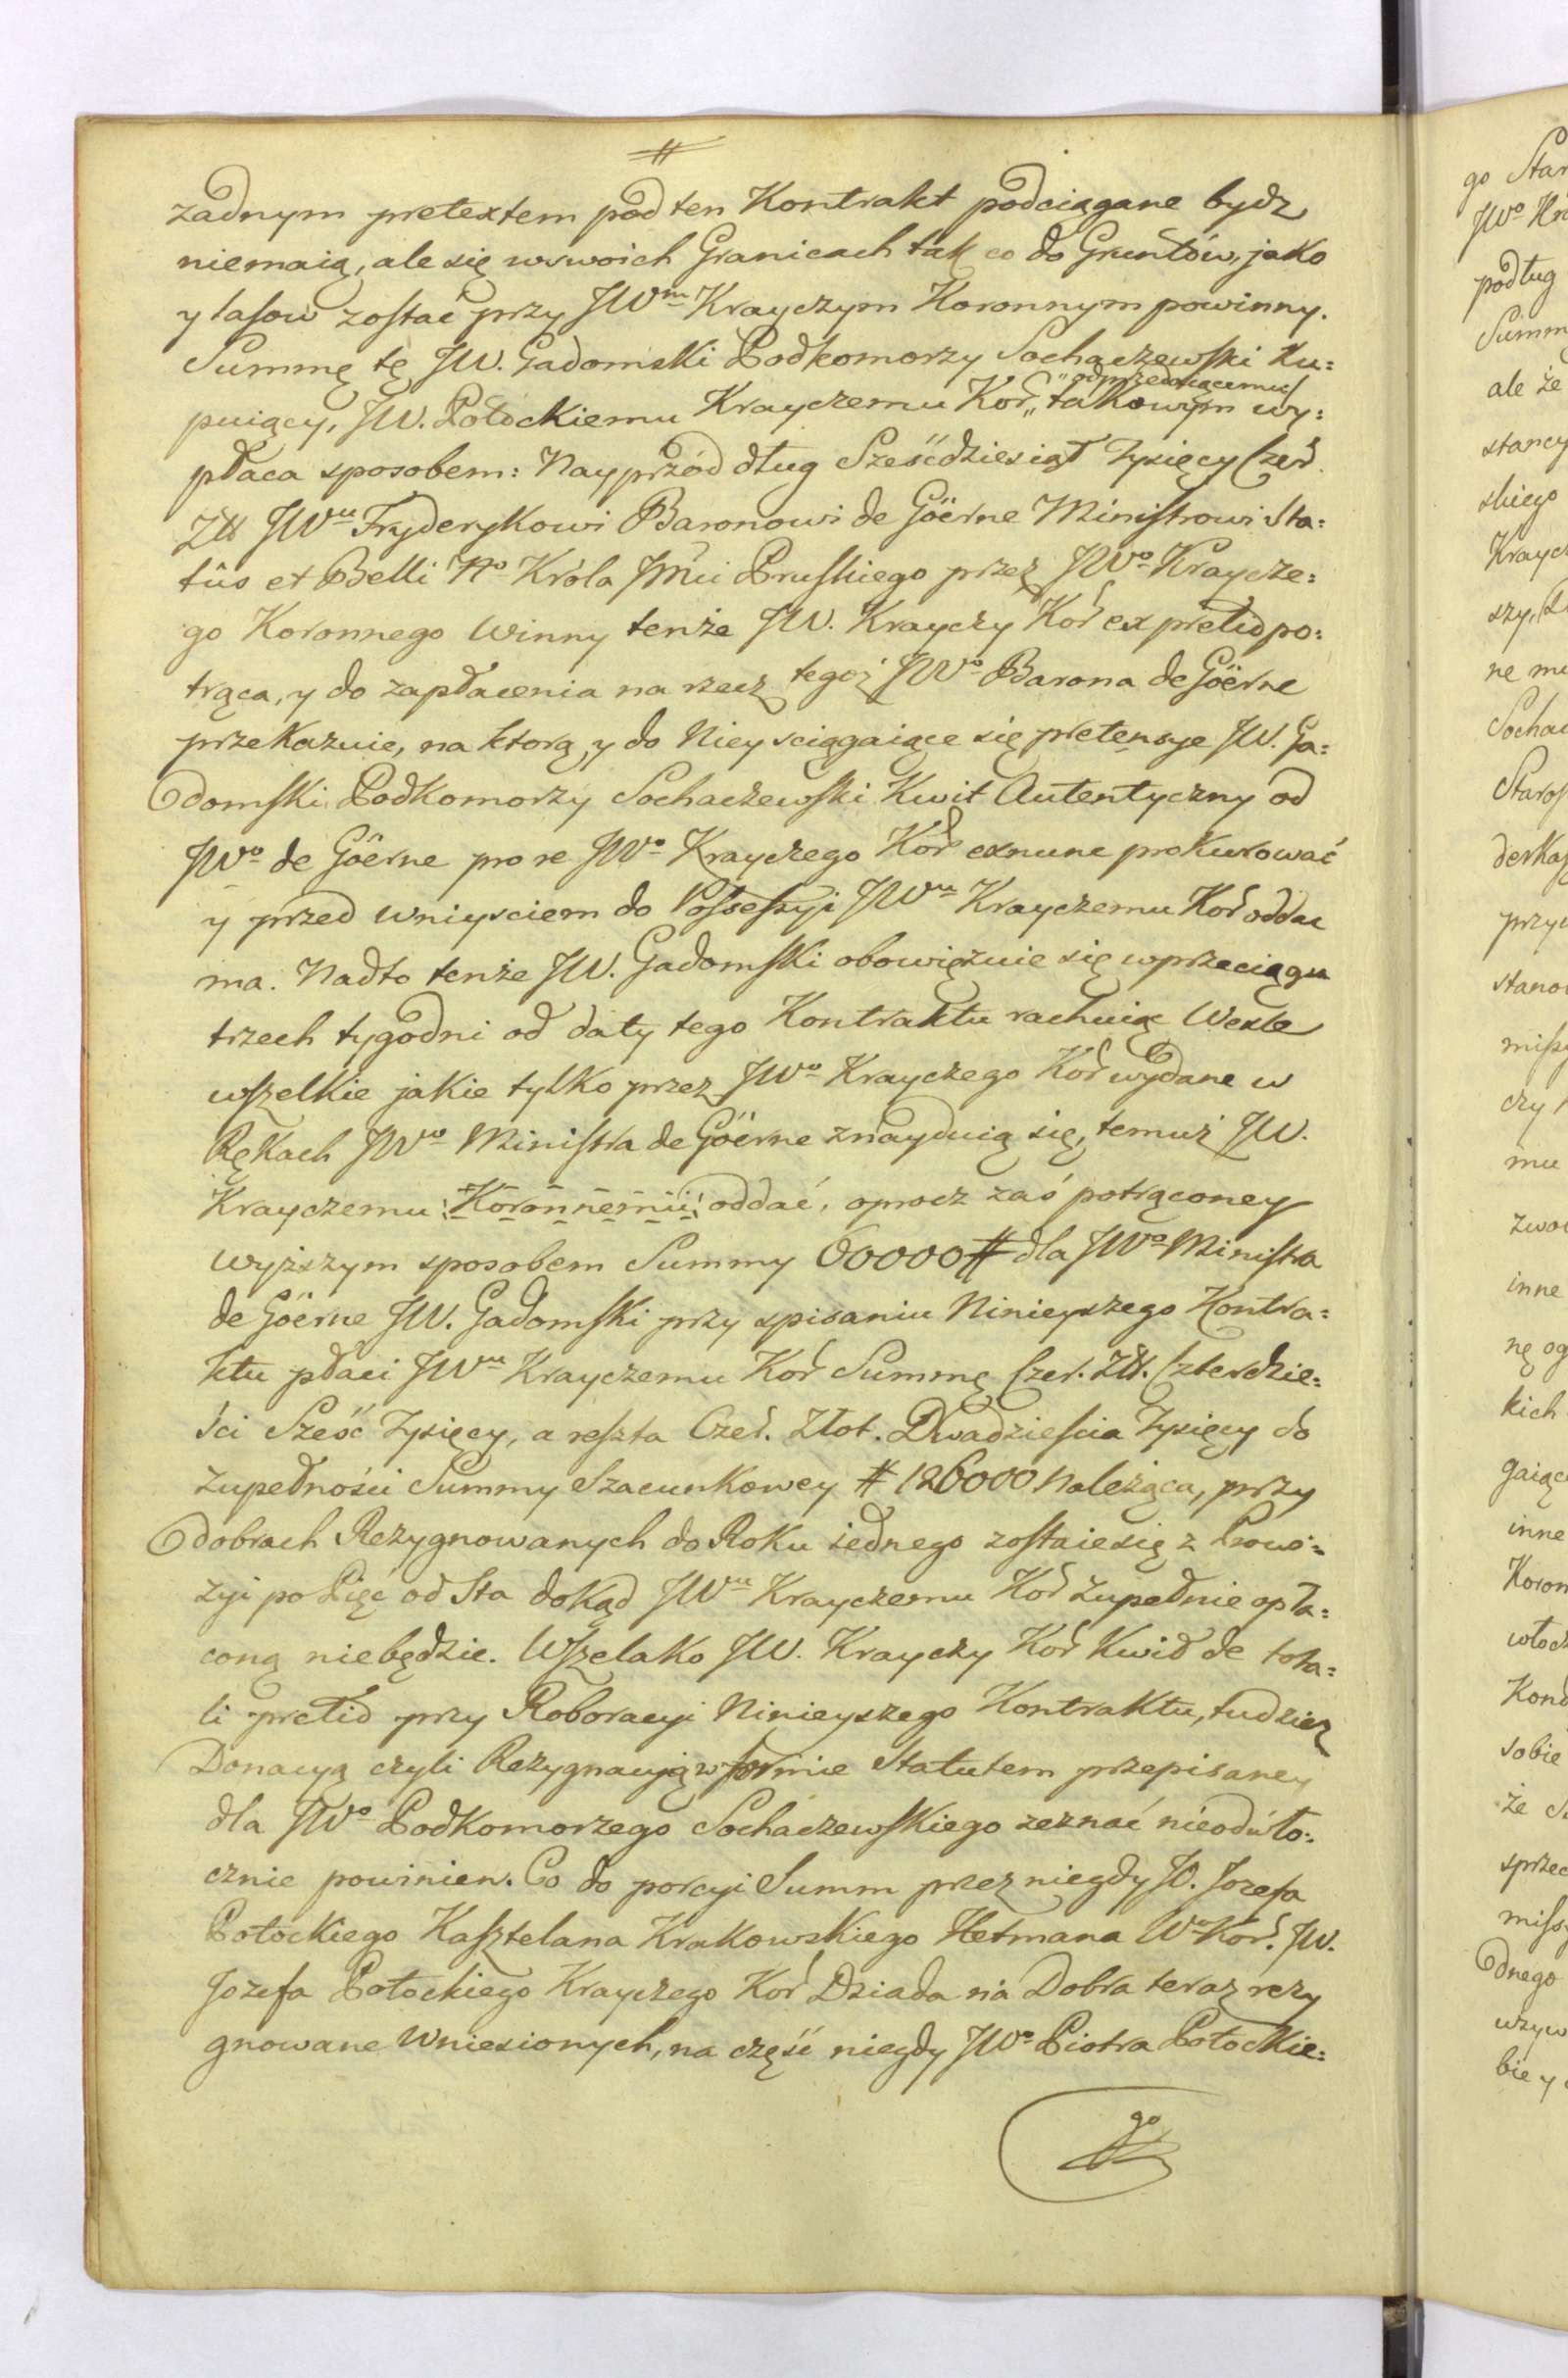 #
zadnym pretextem pod ten Kontrakt podciągane bydz
niemaią, ale się wswoich Granicach tak co do Gruntów, jako
y lasow zostać przy JWm Krayczym Koronnym powinny.
Summę tę JW. Gadomski Podkomorzy Sochaczewski Ku:
„odprzedaiącemu
puiący, JW. Potockiemu Krayczemu Kor „takowym wy:
płaca sposobem: Nayprzód dług Sześćdziesiąt Tysięcy Czer.
Złł JWu Fryderykowi Baronowi de Göerne Ministrowi Sta:
tûs et Belli Ngo Króla Jmći Pruskiego przez JWo Kraycze:
go Koronnego Winny tenże JW. Krayczy Kor ex pretio po:
trąca, y do zapłacenia na rzecz tegoż JWo Barona de Göerne
przekazuie, na ktorą, y do Niey sciągaiące się pretensye JW. Ga:
domski Podkomorzy Sochaczewski Kwit Autentyczny od
JWo de Göerne pro re JWo Krayczego Kor exnunc prokurować
y przed wniysciem do Possessyi JWu Krayczemu Kor oddac
ma. Nadto tenże JW. Gadomski obowięzuie się wprzeciągu
trzech tygodni od daty tego Kontraktu rachuiąc Wexle
wszelkie jakie tylko przez JWo Krayczego Kor wydane w
Rękach JWo Ministra de Göerne znayduią się, temuż JW.
Krayczemu Koronnemu oddać, oprocz zaś potrąconey
wyższym sposobem Summy 60000# dla JWo Ministra
de Göerne JW. Gadomski przy spisaniu Ninieyszego Kontra:
ktu płaci JWu Krayczemu Kor Summę Czer. Złł. Czterdzie:
ści Sześć Tysięcy, a reszta Czer. Złot. Dwadzieścia Tysięcy do
zupełności Summy Szacunkowey # 126000 Należąca, przy
dobrach Rezygnowanych do Roku iednego zostaie się z Prowi:
zyi po Pięć od Sta dokąd JWu Krayczemu Kor zupełnie opła:
coną niebędzie. Wszelako JW. Krayczy Kor Kwid de tota:
li pretio przy Roboracyi Ninieyszego Kontraktu, tudziez
Donacyą czyli Rezygnacyią w formie Statutem przepisaney
dla JWo Podkomorzego Sochaczewskiego zeznać nieodwło:
cznie powinien. Co do porcyi Summ przez niegdy JO. Jozefa
Potockiego Kasztelana Krakowskiego Hetmana Wo Kor. JW.
Jozefa Potockiego Krayczego Kor Dziada na Dobra teraz rezy
gnowane Wniesionych, na część niegdy JWo Piotra Potockie:
go
go Star
JWo
podług
Summ
ale że
stancy
skiego
Kraycz
szy,
ne
Sochac
Staros
przy
czy
mu
inne
nę og
kich
gaiąc
inne
Koron
Kond
sobie
że
sprzec
dnego
bie y